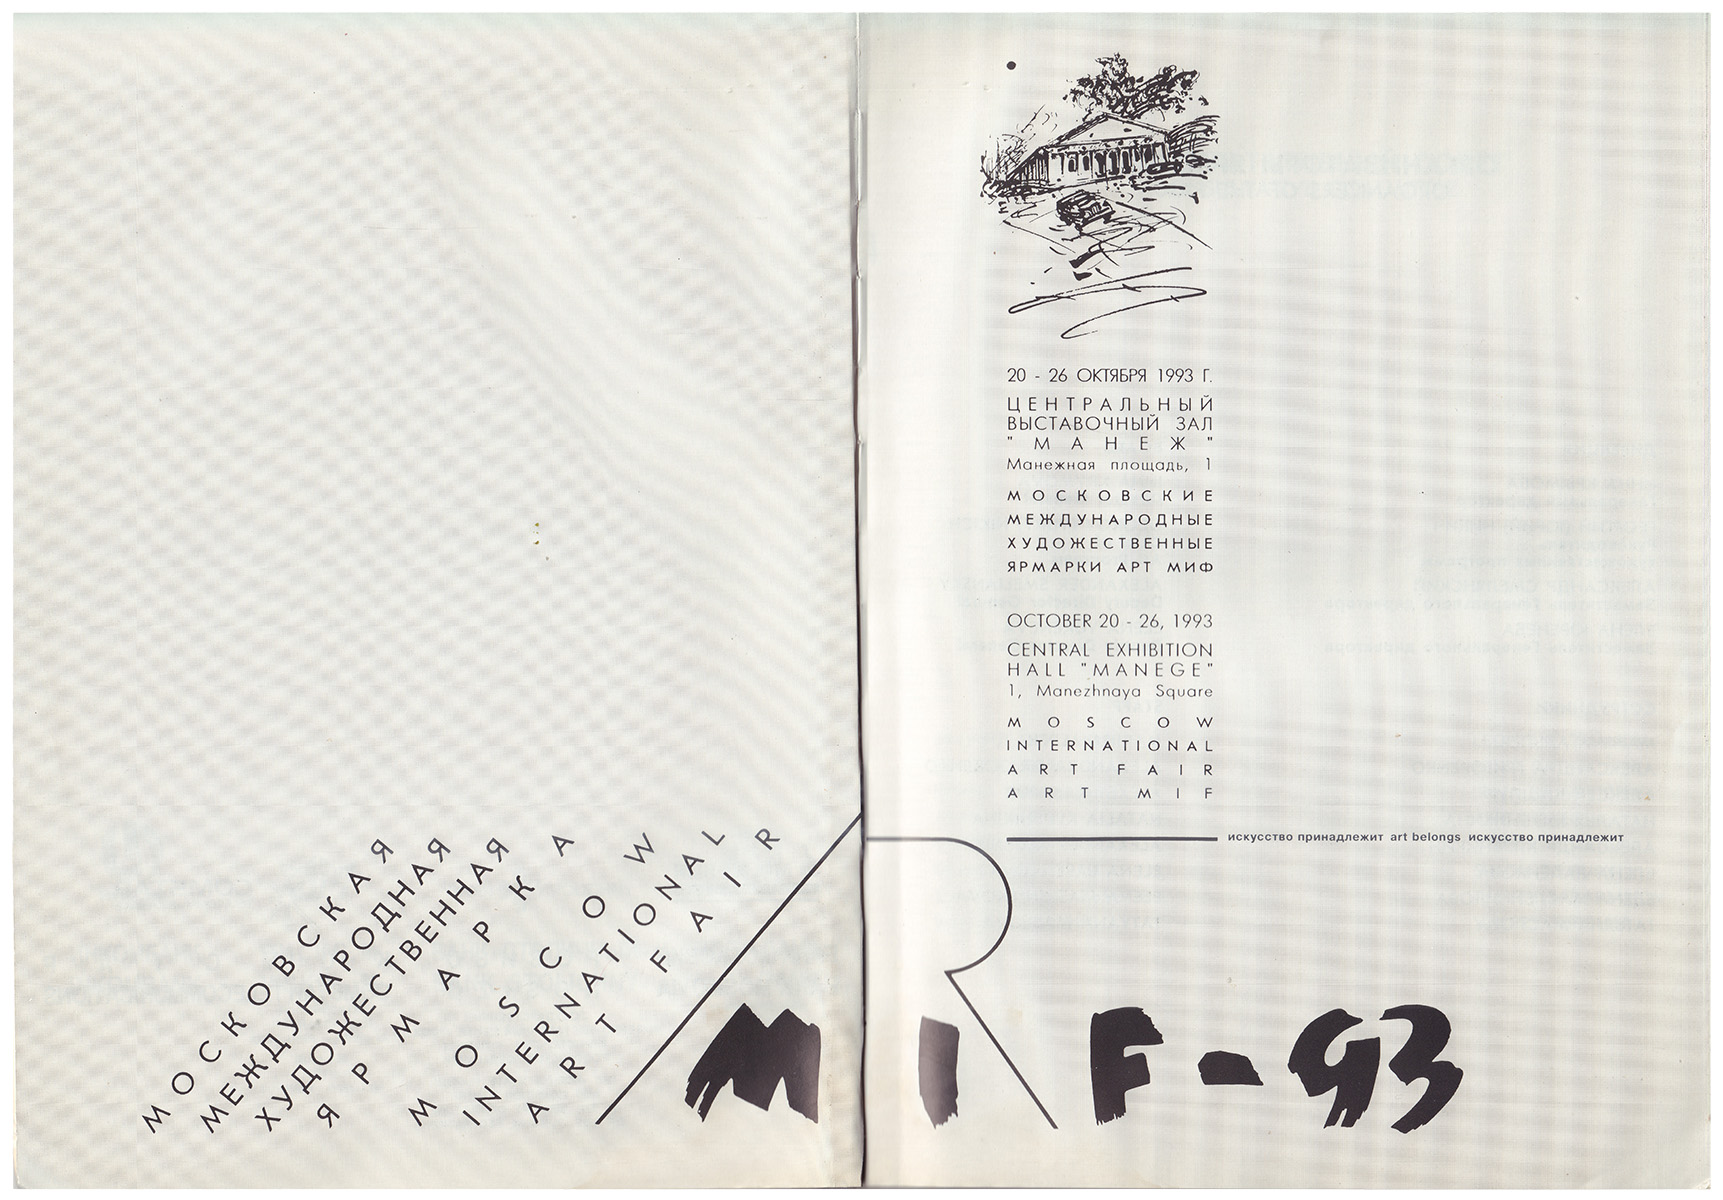 МОСКОВСКАЯ
МЕЖДУНАРОДНАЯ
ХУДОЖЕСТВЕННАЯ
ЯРМАРКА
MOSCOW
INTERNATIONAL
ART FAIR
20 - 26 ОКТЯБРЯ 1993 Г.
ЦЕНТРАЛЬНЫЙ
ВЫСТАВОЧНЫЙ ЗАЛ
"МАНЕЖ"
Манежная площадь, 1
МОСКОВСКИЕ
МЕЖДУНАРОДНЫЕ
ХУДОЖЕСТВЕННЫЕ
ЯРМАРКИ АРТ МИФ
OCTOBER 20 - 26, 1993
CENTRAL EXHIBITION
HALL "MANEGE"
1, Manezhnaya Square
MOSCOW
INTERNATIONAL
ART FAIR
ART MIF
искусство принадлежит art belongs искусство принадлежит
MIF-93